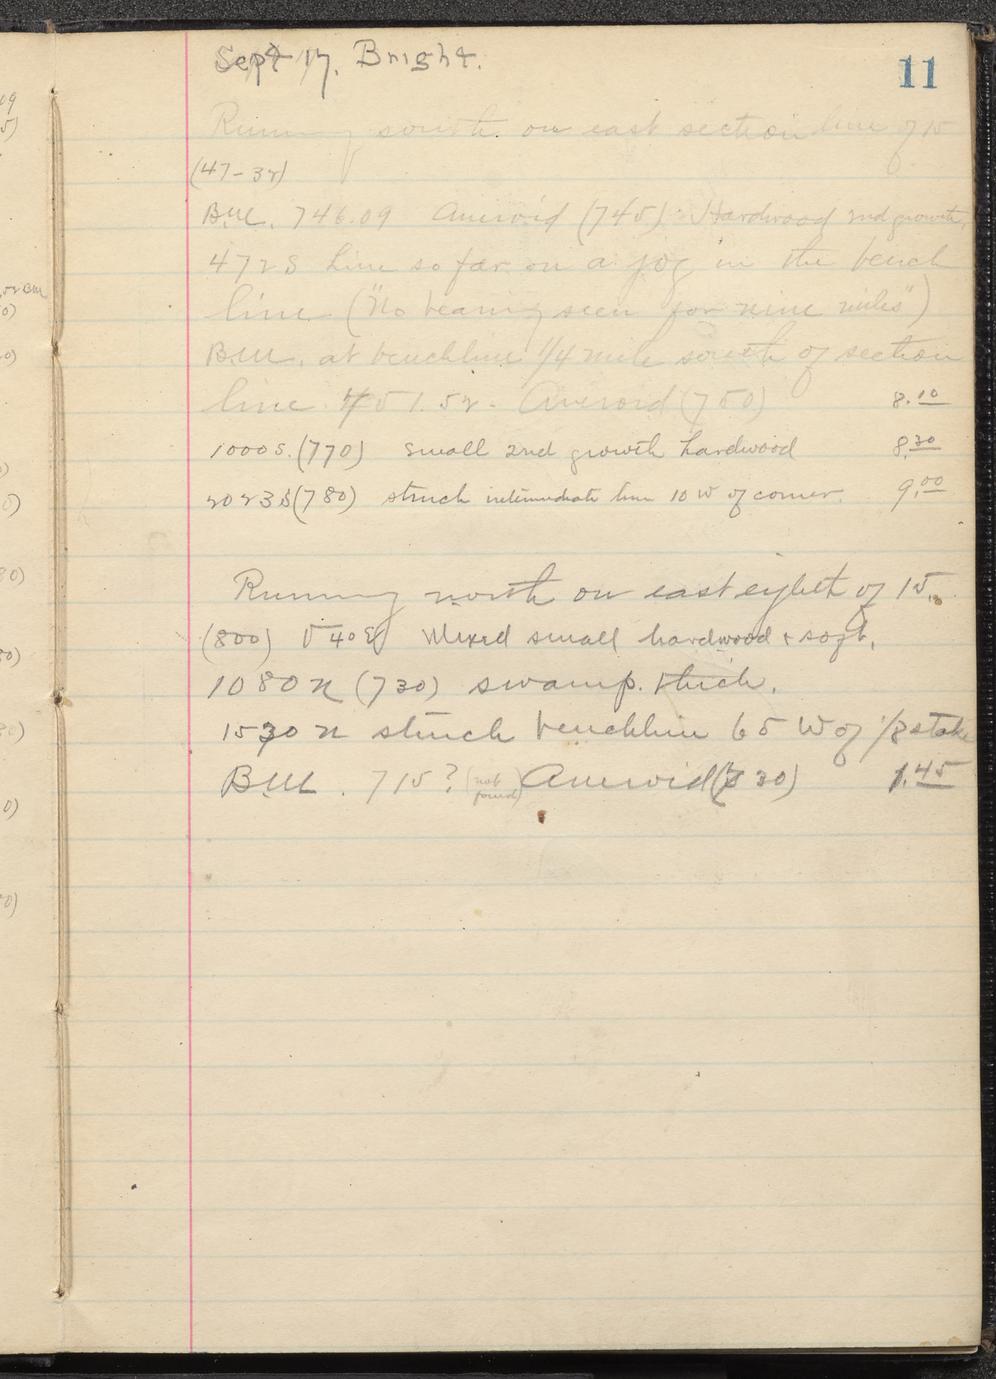 11
Sept 17. Bright.
Running south on east section line of 15
(47-32)
B.M. 746.09 Aneroid (745) Hardwood 2nd growth.
472 S Line so far on a jog in the bench
line ("No bearing seen for nine miles")
B.M. at benchline 1/4 mile south of section
line 751.52. Aneroid (750) 8.10
1000 S. (770) small 2nd growth hardwood 8.30
2023 S (780) struck intermediate line 10 W of corner. 9.00
Running north on east eighth of 15.
(800) V 40 E Mixed small hardwood + soft.
1080 N (730) swamp. thick.
1530 N struck benchline 65 W of 1/8 stake
B.M. 715? (not found) Aneroid (730) 1.45